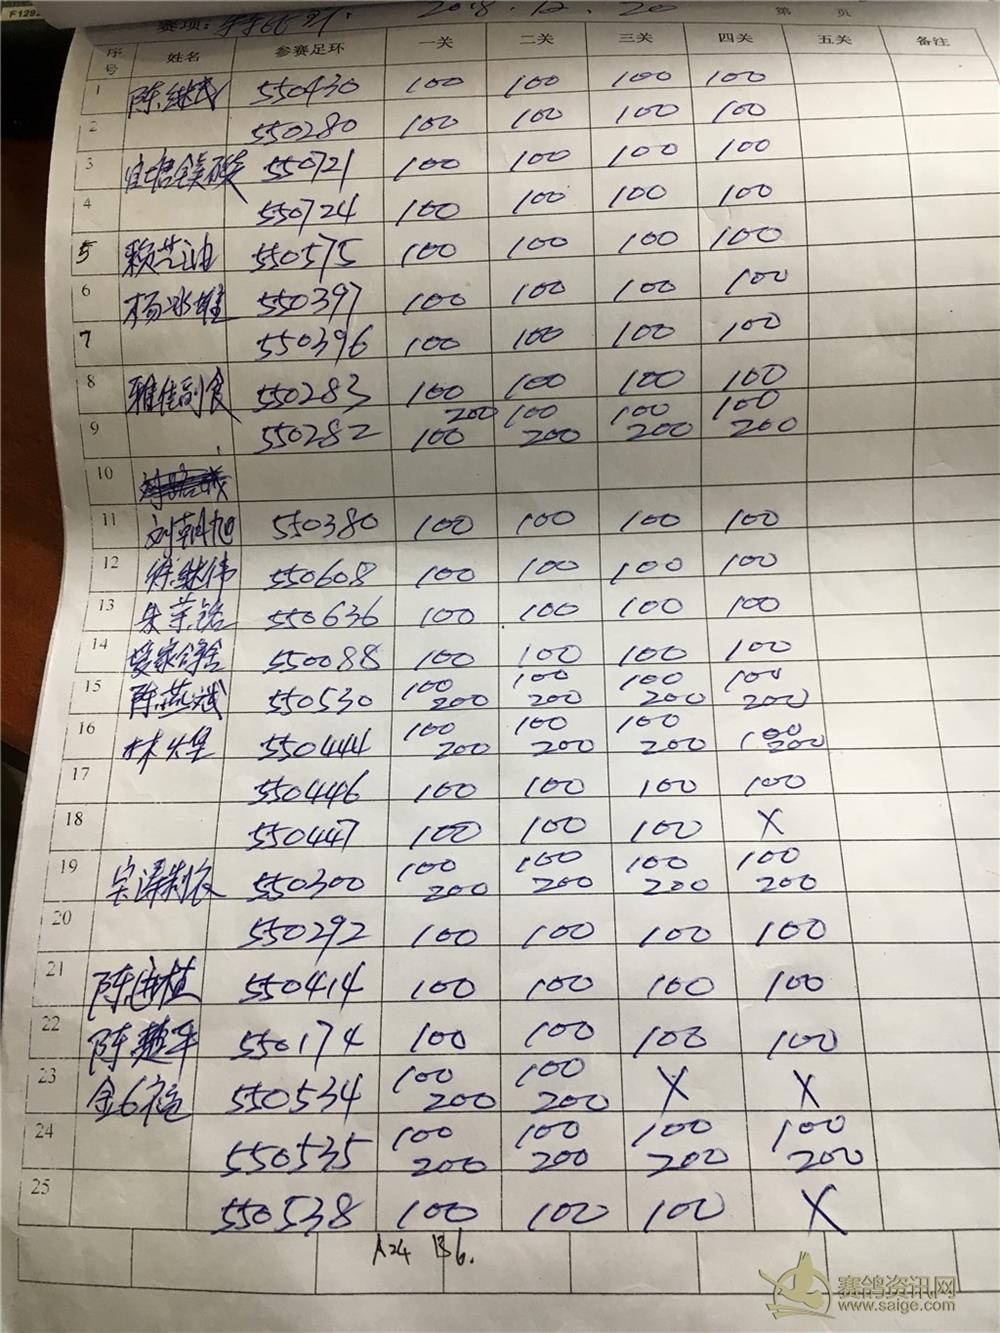 F129
赛项: 2018.12.20 第 页
序号 姓名 参赛足环 一关 二关 三关 四关 五关 备注
1 陈继武 550430 100 100 100 100
2 550280 100 100 100 100
3 550721 100 100 100 100
4 550724 100 100 100 100
5 赖芝油 550575 100 100 100 100
6 杨冰雄 550397 100 100 100 100
7 550396 100 100 100 100
8 雅佳副食 550283 100 100 100 100
9 550282 100 200 100 200 100 200 100 200
10
11 刘朝旭 550380 100 100 100 100
12 徐继伟 550608 100 100 100 100
13 朱荣铭 550636 100 100 100 100
14 550088 100 100 100 100
15 陈燕斌 550530 100 200 100 200 100 200 100 200
16 林火生 550444 100 200 100 200 100 200 100 200
17 550446 100 100 100 100
18 550447 100 100 100 X
19 宝泽制衣 550300 100 200 100 200 100 200 100 200
20 550292 100 100 100 100
21 陈进植 550414 100 100 100 100
22 陈楚平 550174 100 100 100 100
23 550534 100 200 100 200 X X
24 550535 100 200 100 200 100 200 100 200
25 550538 100 100 100 X
A24 B6.
赛鸽资讯网
www.saige.com